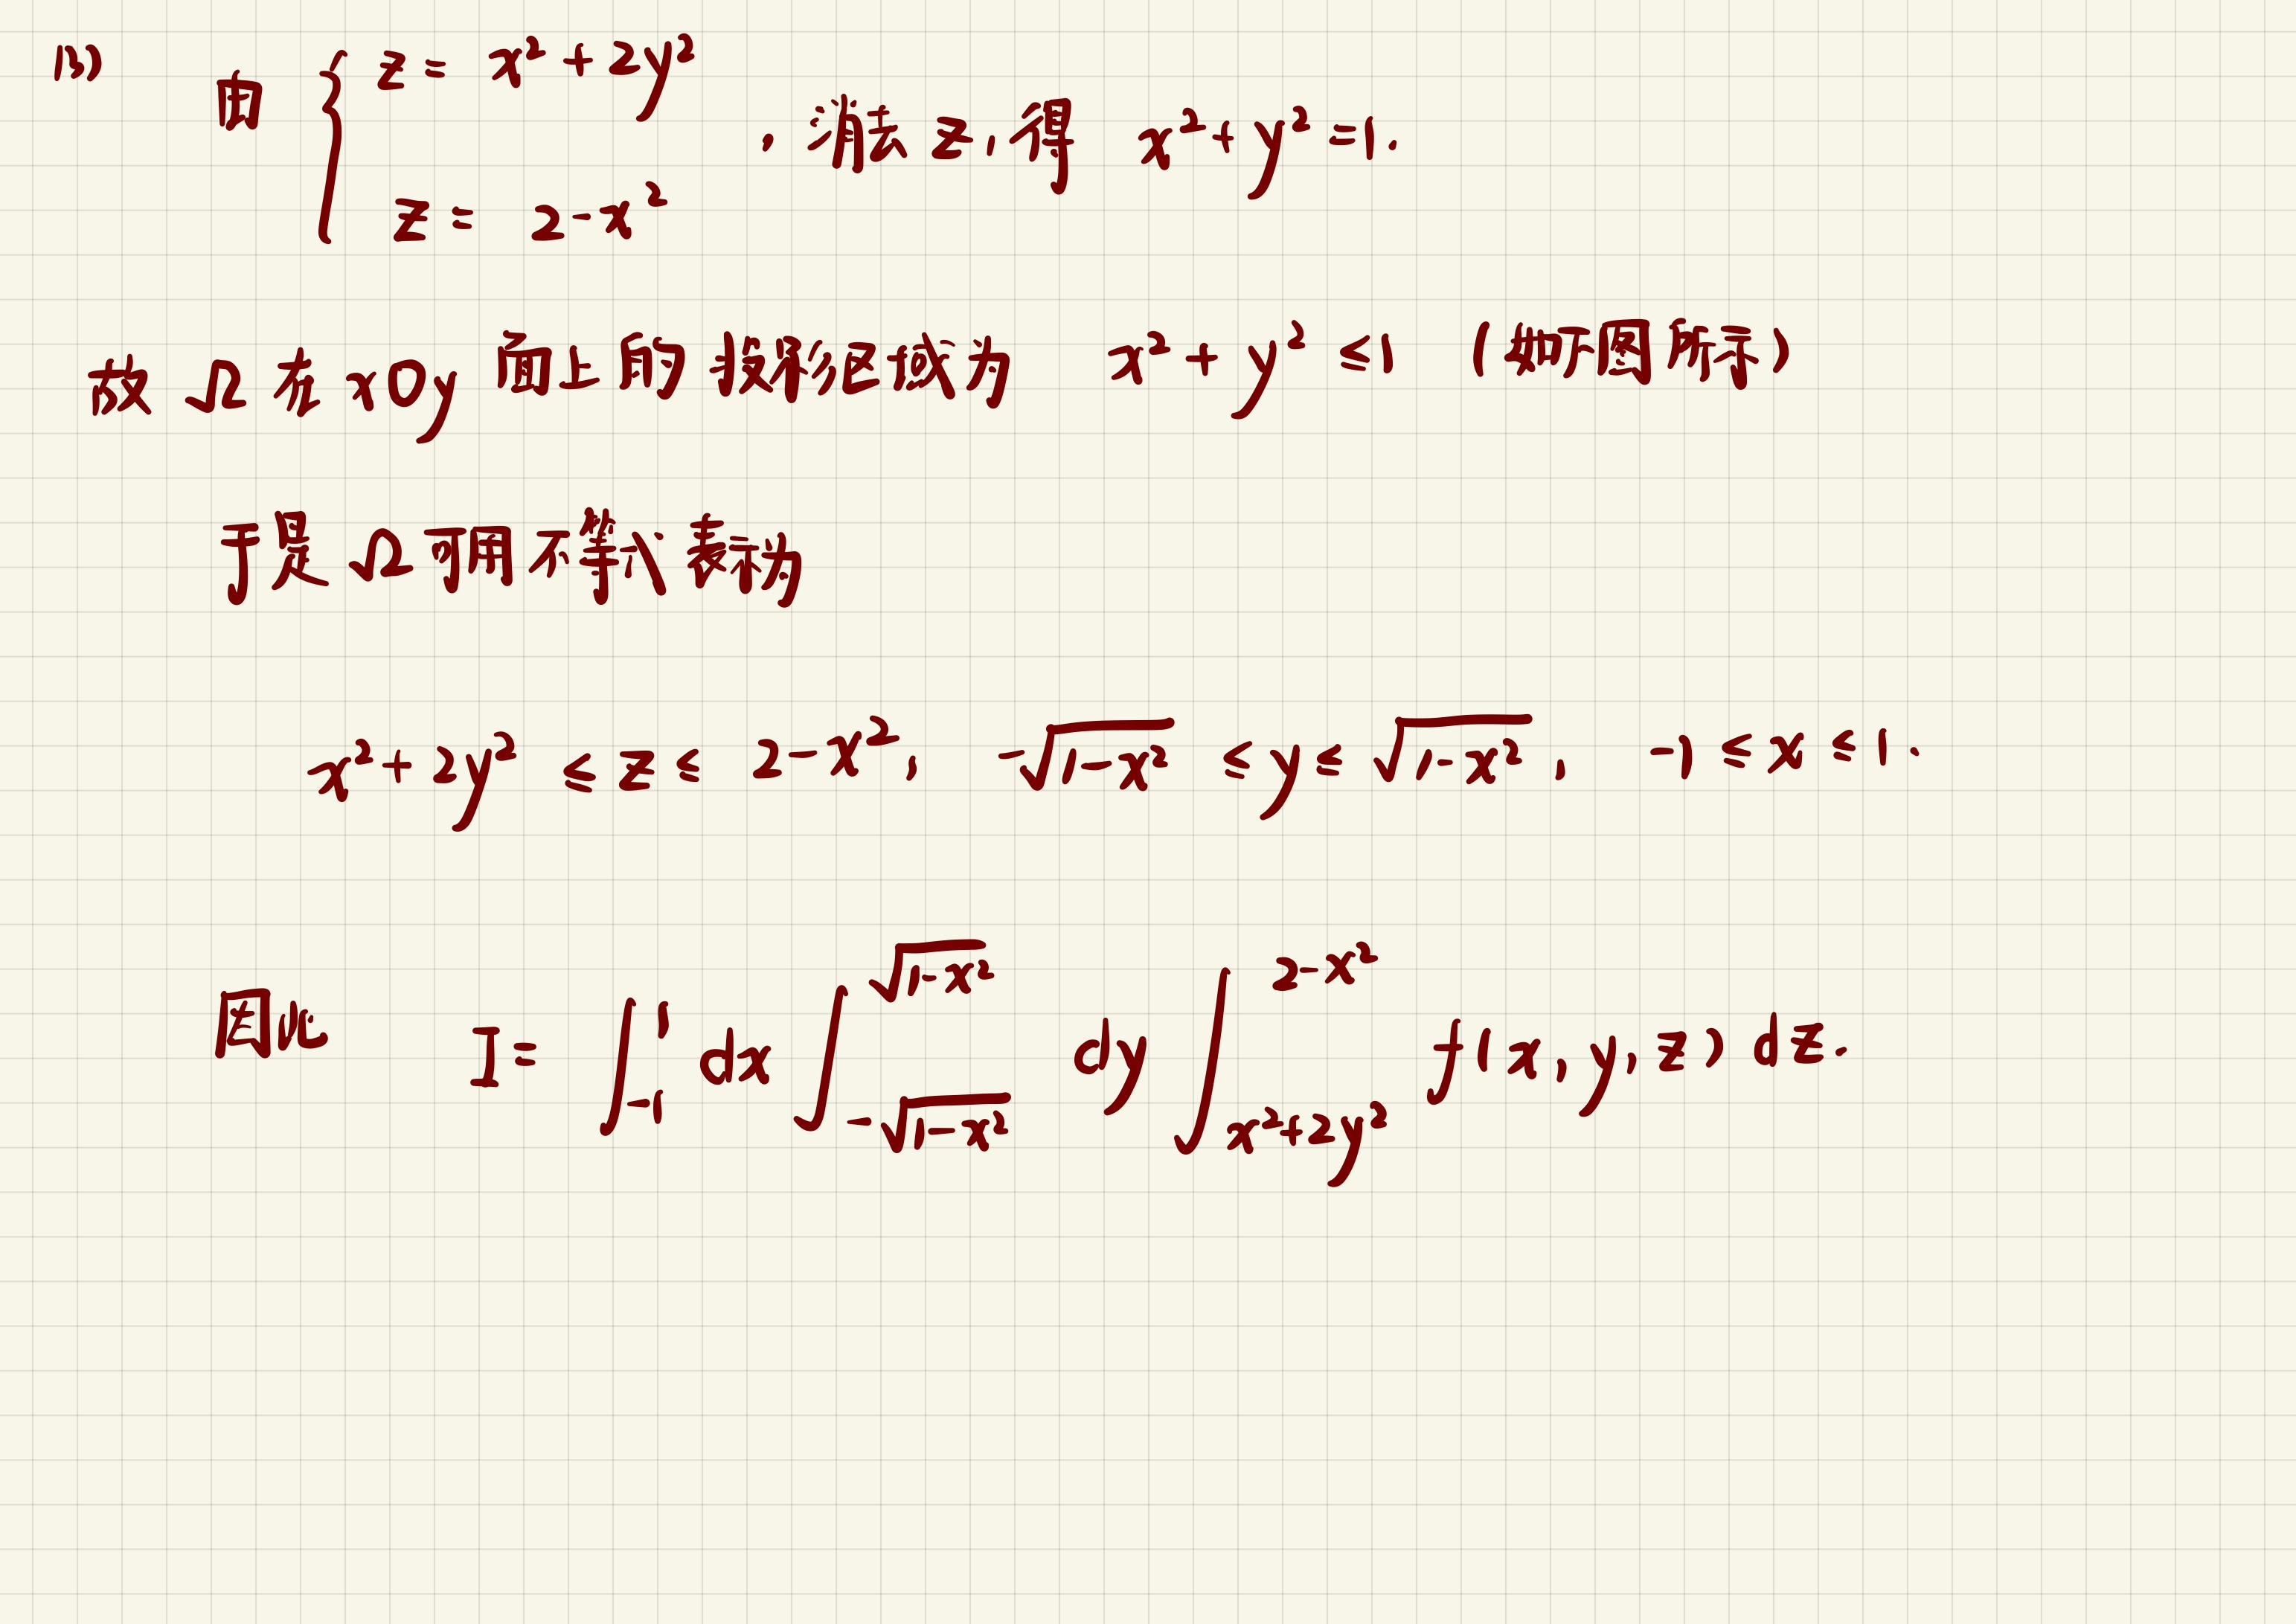 (3)
由 { z = x² + 2y²
z = 2-x² , 消去 z, 得 x²+y²=1.
故 Ω 在 xOy 面上的投影区域为 x²+y² ≤1 (如下图所示)
于是 Ω 可用不等式表示为
x²+2y² ≤ z ≤ 2-x², -√(1-x²) ≤ y ≤ √(1-x²), -1 ≤ x ≤ 1.
因此 I = ∫_{-1}^{1} dx ∫_{-√(1-x²)}^{√(1-x²)} dy ∫_{x²+2y²}^{2-x²} f(x,y,z) dz.